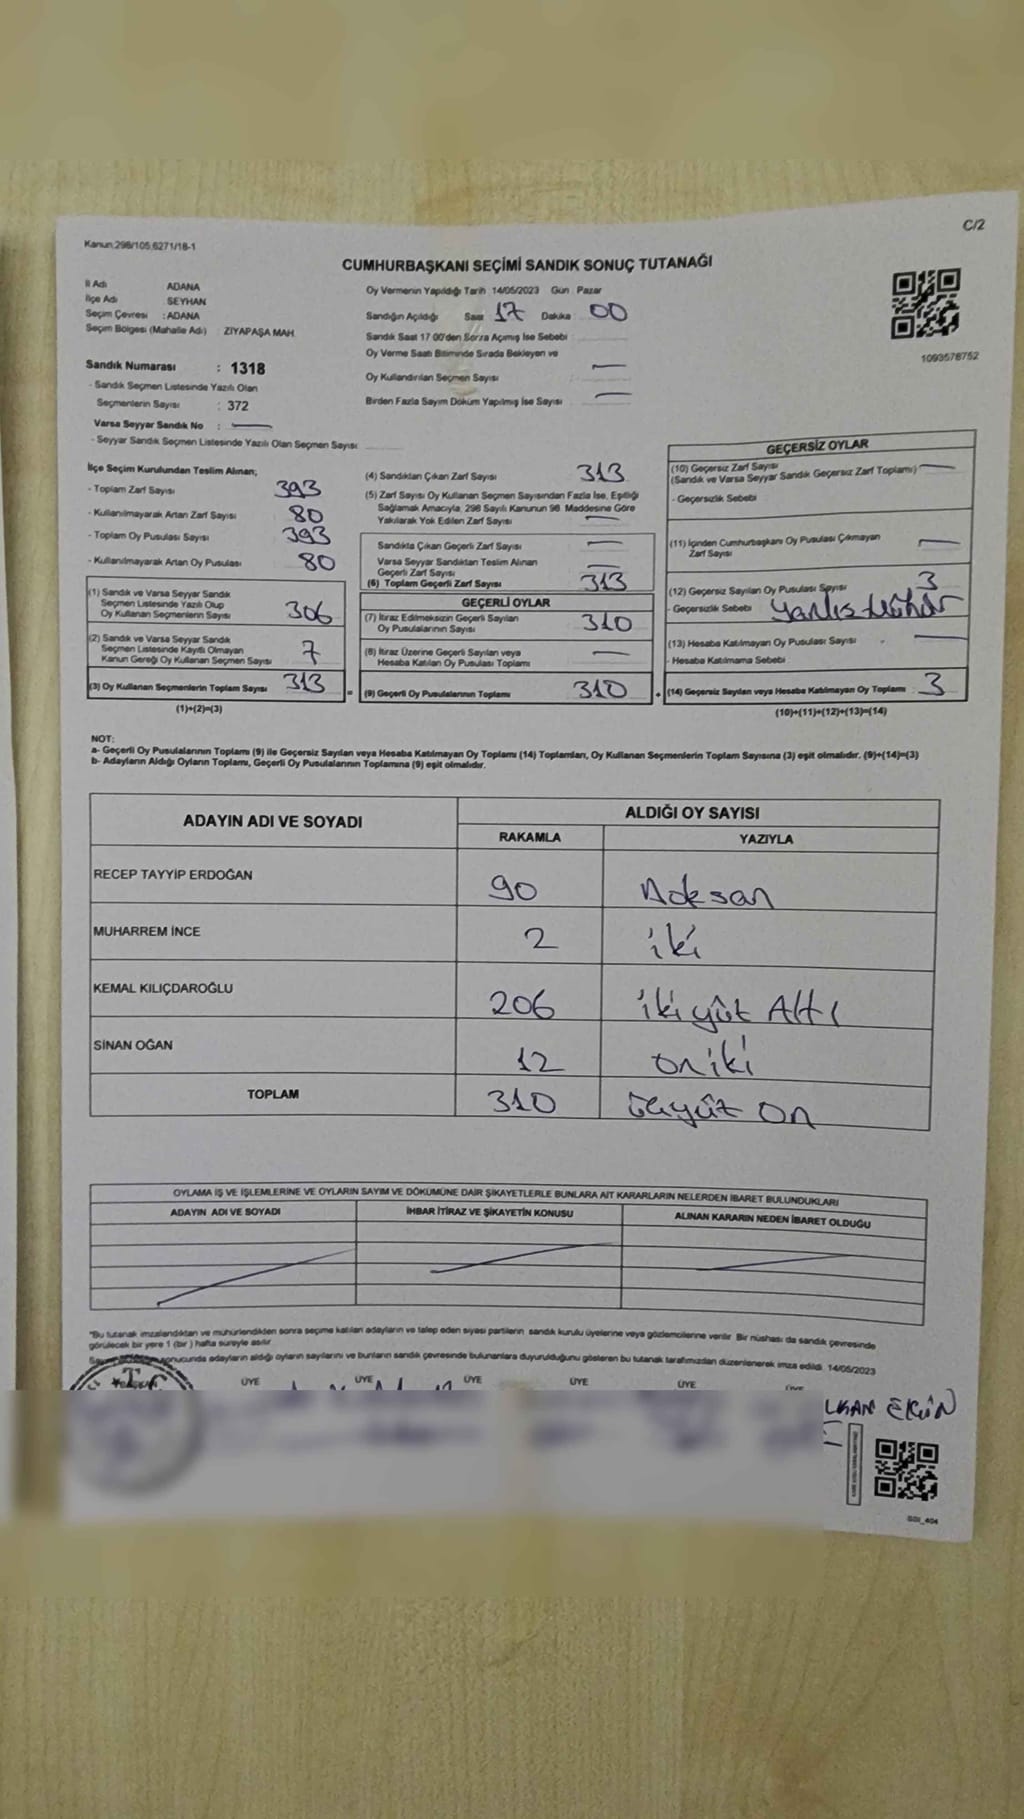 C/2
Kanun:298/105,6271/18-1
CUMHURBAŞKANI SEÇİMİ SANDIK SONUÇ TUTANAĞI
İl Adı ADANA
İlçe Adı SEYHAN
Seçim Çevresi : ADANA
Seçim Bölgesi (Mahalle Adı) : ZİYAPAŞA MAH.
Oy Vermenin Yapıldığı Tarih 14/05/2023 Gün : Pazar
Sandığın Açıldığı Saat 17 Dakika 00
Sandık Saat 17:00'den Sonra Açımış İse Sebebi
Oy Verme Saati Bitiminde Sırada Bekleyen ve
Oy Kullandırılan Seçmen Sayısı : —
Birden Fazla Sayım Döküm Yapılmış İse Sayısı : —
1093578752
Sandık Numarası : 1318
- Sandık Seçmen Listesinde Yazılı Olan
Seçmenlerin Sayısı : 372
Varsa Seyyar Sandık No : —
- Seyyar Sandık Seçmen Listesinde Yazılı Olan Seçmen Sayısı
İlçe Seçim Kurulundan Teslim Alınan;
- Toplam Zarf Sayısı 393
- Kullanılmayarak Artan Zarf Sayısı 80
- Toplam Oy Pusulası Sayısı 393
- Kullanılmayarak Artan Oy Pusulası 80
(1) Sandık ve Varsa Seyyar Sandık
Seçmen Listesinde Yazılı Olup
Oy Kullanan Seçmenlerin Sayısı 306
(2) Sandık ve Varsa Seyyar Sandık
Seçmen Listesinde Kayıtlı Olmayan
Kanun Gereği Oy Kullanan Seçmen Sayısı 7
(3) Oy Kullanan Seçmenlerin Toplam Sayısı 313
(1)+(2)=(3)
(4) Sandıktan Çıkan Zarf Sayısı 313
(5) Zarf Sayısı Oy Kullanan Seçmen Sayısından Fazla İse, Eşitliği
Sağlamak Amacıyla, 298 Sayılı Kanunun 98. Maddesine Göre
Yakılarak Yok Edilen Zarf Sayısı —
Sandıkta Çıkan Geçerli Zarf Sayısı —
Varsa Seyyar Sandıktan Teslim Alınan
Geçerli Zarf Sayısı —
(6) Toplam Geçerli Zarf Sayısı 313
GEÇERLİ OYLAR
(7) İtiraz Edilmeksizin Geçerli Sayılan
Oy Pusulalarının Sayısı 310
(8) İtiraz Üzerine Geçerli Sayılan veya
Hesaba Katılan Oy Pusulası Toplamı —
= (9) Geçerli Oy Pusulalarının Toplamı 310
GEÇERSİZ OYLAR
(10) Geçersiz Zarf Sayısı
(Sandık ve Varsa Seyyar Sandık Geçersiz Zarf Toplamı) —
- Geçersizlik Sebebi
(11) İçinden Cumhurbaşkanı Oy Pusulası Çıkmayan
Zarf Sayısı —
(12) Geçersiz Sayılan Oy Pusulası Sayısı 3
- Geçersizlik Sebebi Yanlış Mühür
(13) Hesaba Katılmayan Oy Pusulası Sayısı —
- Hesaba Katılmama Sebebi
+ (14) Geçersiz Sayılan veya Hesaba Katılmayan Oy Toplamı 3
(10)+(11)+(12)+(13)=(14)
NOT:
a- Geçerli Oy Pusulalarının Toplamı (9) ile Geçersiz Sayılan veya Hesaba Katılmayan Oy Toplamı (14) Toplamları, Oy Kullanan Seçmenlerin Toplam Sayısına (3) eşit olmalıdır. (9)+(14)=(3)
b- Adayların Aldığı Oyların Toplamı, Geçerli Oy Pusulalarının Toplamına (9) eşit olmalıdır.
ADAYIN ADI VE SOYADI ALDIĞI OY SAYISI
RAKAMLA YAZIYLA
RECEP TAYYİP ERDOĞAN 90 Doksan
MUHARREM İNCE 2 iki
KEMAL KILIÇDAROĞLU 206 iki yüz Altı
SİNAN OĞAN 12 on iki
TOPLAM 310 üçyüz On
OYLAMA İŞ VE İŞLEMLERİNE VE OYLARIN SAYIM VE DÖKÜMÜNE DAİR ŞİKAYETLERLE BUNLARA AİT KARARLARIN NELERDEN İBARET BULUNDUKLARI
ADAYIN ADI VE SOYADI İHBAR İTİRAZ VE ŞİKAYETİN KONUSU ALINAN KARARIN NEDEN İBARET OLDUĞU
"Bu tutanak imzalandıktan ve mühürlendikten sonra seçime katılan adayların ve talep eden siyasi partilerin sandık kurulu üyelerine veya gözlemcilerine verilir. Bir nüshası da sandık çevresinde
görülecek bir yere 1 (bir) hafta süreyle asılır.
sonucunda adayların aldığı oyların sayılarını ve bunların sandık çevresinde bulunanlara duyurulduğunu gösteren bu tutanak tarafımızdan düzenlenerek imza edildi. 14/05/2023
BAŞKAN ÜYE ÜYE ÜYE ÜYE ÜYE ÜYE
T.C.
LKAN EKİN